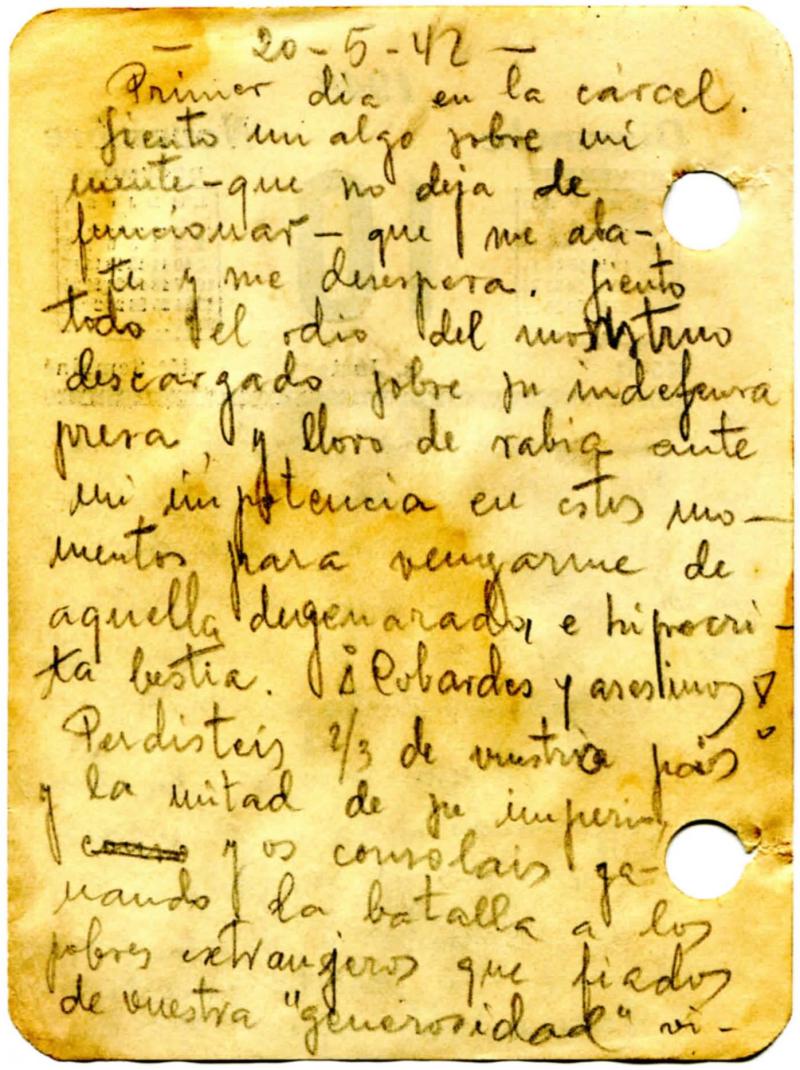 — 20-5-42 —
Primer dia en la cárcel.
Siento un algo sobre mi
mente - que no deja de
funcionar - que me aba-
te y me desespera. Siento
todo el odio del monstruo
descargado sobre su indefensa
presa, y lloro de rabia ante
mi impotencia en estos mo-
mentos para vengarme de
aquella degenarada, e hipocri-
ta bestia. ¡Cobardes y asesinos!
Perdisteis 2/3 de vuestro país
y la mitad de su imperio,
y os consolais ga-
nando la batalla a los
pobres extranjeros que fiados
de vuestra "generosidad" vi-